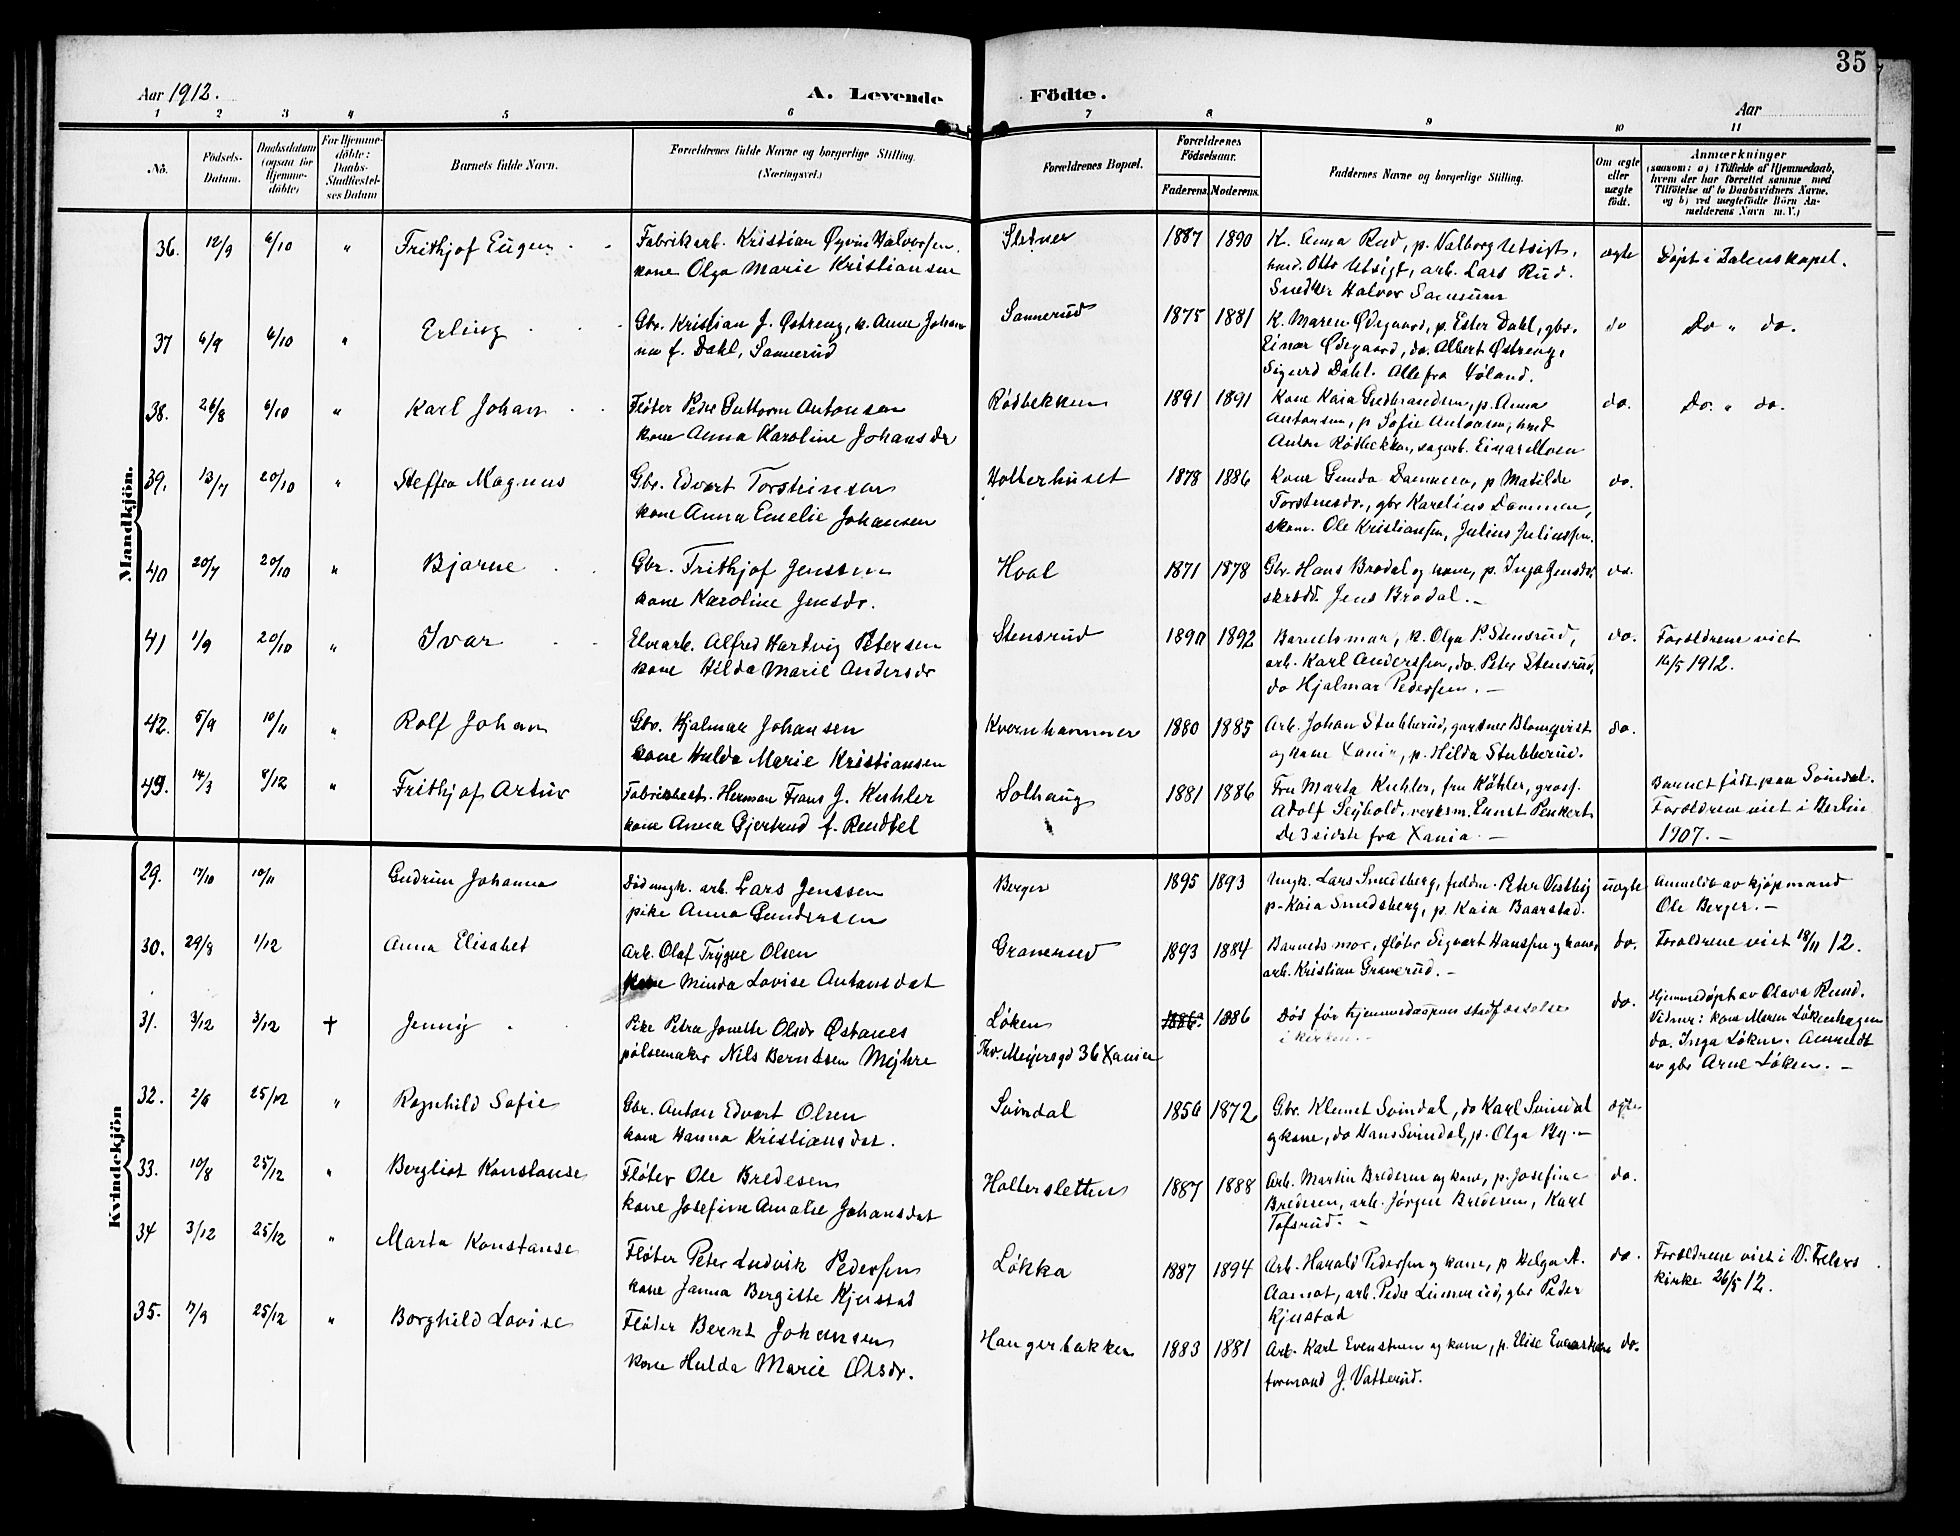 35
Aar 1912.
A. Levende Födte.
Aar
1 2 3 4 5 6 7 8 9 10 11
No.
Födsels-Datum.
Daabsdatum (ogsaa for Hjemme-döbte)
For Hjemme-döbte: Daabs-Stadfæstel-ses Datum
Barnets fulde Navn.
Forældrenes fulde Navne og borgerlige Stilling. (Næringsvei.)
Forældrenes Bopæl.
Forældrenes Födselsaar.
Faderens. Moderens.
Faddernes Navne og borgerlige Stilling.
Om ægte eller uægte födt.
Anmærkninger
(saasom: a) i Tilfælde af Hjemmedaab, hvem der har forrettet samme med Tilföielse af to Daabsvidners Navne, og b) ved uægtefödte Börn An-melderens Navn m. V.)
Mandkjön.
36. 12/9 6/10 " Frithjof Eugen
Fabrikarb. Kristian Øyvin Halvorsen
kone Olga Marie Kristiansen
Sletner 1887 1890
K. Anna Rud, p. Valborg Utsigt,
hmd. Otto Utsigt, arb. Lars Rud.
Snedker Halvor Samsuen
ægte
Døpt i Dalenskapel.
37 6/9 6/10 " Erling
Gbr. Kristian J. Østreng, k. Anne Johan
na f. Dahl, Sannerud
Sannerud 1875 1881
K. Maren Ødegaard, p. Ester Dahl, gbr.
Einar Ødegaard, do. Albert Østreng,
Sigurd Dahl. Alle fra Høland.
do
Do " do.
38. 26/8 6/10 " Karl Johan
Fløter Peder Guttorm Antonsen
kone Anna Karoline Johansdr
Rødbekken 1891 1891
Kone Kaia Gudbrandsen, p. Anna
Antonsen, p Sofie Antonsen, hmd
Anton Rødbekken, sagarb. Einar Moen
do.
Do. " do.
39. 13/7 20/10 " Steffen Magnus
Gbr. Edvart Torsteinsen
kone Anna Emelie Johansen
Holterhuset 1878 1886
Kone Gunda Dammen, p Matilde
Torstensdr., gbr Karelius Dammen,
skom. Ole Kristiansen, Julius Juliussen.
do.
40 20/7 20/10 " Bjarne
Gbr. Frithjof Jenssen
kone Karoline Jensdr.
Hval 1871 1878
Gbr. Hans Brodal og kone, p. Inga Jensdr.
skrædd. Jens Brodal. –
do.
41 1/9 20/10 " Ivar
Elvearb. Alfred Hartvig Petersen
kone Hilda Marie Andersdr
Stensrud 1890 1892
Barnets mor, k. Olga P. Stensrud,
arb. Karl Anderssen, do. Peter Stensrud,
do Hjalmar Pedersen. –
do.
Forældrene viet
16/5 1912.
42. 5/9 10/11 " Rolf Johan
Gbr. Hjalmar Johansen
kone Hulda Marie Kristiansen
Kvernhammer 1880 1885
Arb. Johan Stubberud, gartner Blomqvist
og kone Xania, p. Hilda Stubberud.
do.
43. 14/3 8/12 " Frithjof Artur
Fabrikbest. Herman Frans G. Kuhler
kone Anna Gjertrud f. Rendtel
Solhaug 1881 1886
Fru Marta Kuhler, fru Köhler, gross.
Adolf Seybold, verksm. Ernst Penkert
De 3 sidste fra Xania. –
Barnet født paa Svindal.
Forældrene viet i Berlin
1907. –
Kvindekjön
29. 17/10 10/11 Gudrun Johanna
Död ungk. arb. Lars Jenssen
pike Anna Gundersen
Berger 1895 1893
Ungk. Lars Smedsberg, feldm. Peter Vestby
p. Kaia Smedsberg, p. Kaia Baarstad.
uægte
Anmeldt av kjøpmand
Ole Berger. –
30. 29/8 1/12 Anna Elisabet
Arb. Olaf Trygve Olsen
kone Minda Lovise Antonsdat
Granerud 1893 1884
Barnets mor, fløter Sigvart Hanssen og kone,
arb. Kristian Granerud. –
do.
Forældrene viet 18/11 12.
31. 3/12 3/12 † Jenny
Pike Petra Jonette Olsdr Østanes
pølsemaker Nils Berntsen Mejhre
Løken
Thv. Meyersgd 36 Xania
1886 1886
Død før hjemmedaapens stadfæstelse
i kirken. –
do.
Hjemmedøpt av Olava Rund.
Vidner: kone Maren Løkenhagen
do. Inga Løken. Anmeldt
av gbr Arne Løken. –
32. 2/6 25/12 " Ragnhild Sofie
Gbr. Anton Edvart Olsen
kone Hanna Kristiansdat.
Svindal 1856 1872
Gbr. Klemet Svindal, do Karl Svindal
og kone, do Hans Svindal, p. Olga By. –
ægte
33. 10/8 25/12 " Bergliot Konstanse
Fløter Ole Bredesen
kone Josefine Amalie Johansdat
Holtersletten 1887 1888
Arb. Martin Bredesen og kone, p. Josefine
Bredesen, arb. Jørgen Bredesen, Karl
Tofsrud. –
do.
34 3/12 25/12 " Marta Konstanse
Fløter Peter Ludvik Pedersen
kone Janna Bergitte Kjustad
Løkka 1887 1894
Arb. Harald Pedersen og kone, p Helga A.
Aamot, arb. Peder Linnerud, gbr Peder
Kjustad
do.
Forældrene viet i V. Frelsers
kirke 26/5 12.
35. 17/9 25/12 " Borghild Lovise
Fløter Bernt Johansen
kone Hulda Marie Olsdr.
Haugerbakken 1883 1881
Arb. Karl Evensen og kone, p. Elise
formand J. Vatterud.
do.